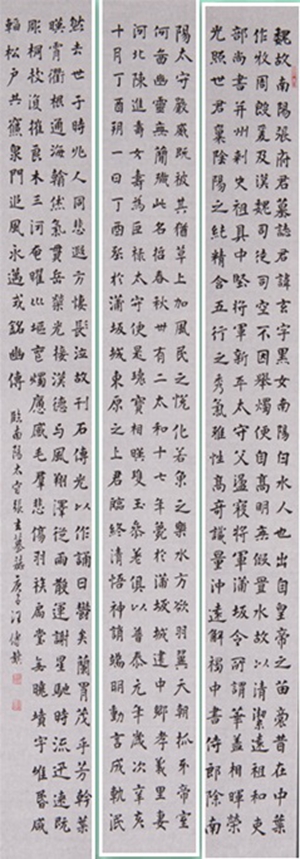 魏故南陽張府君墓誌君諱玄字黑女白水人也出自皇帝之苗裔昔在中葉
作牧周殷爰及漢魏司徒司空不因舉燭便自高明無假置水故以清潔遠祖和吏
部尚書并州刺史祖具中堅將軍新平太守父盪寇將軍蒲坂令所謂華蓋相暉榮
光照世君稟陰陽之純精含五行之秀氣雅性高奇識量沖遠解褐中書侍郎除南
陽太守嚴威既被其猶草上加風民之悅化若魚之樂水方欲羽翼天朝抓牙帝室
何啚幽靈無簡殲此名哲春秋卅有二太和十七年薨於蒲坂城建中鄉孝義里妻
河北陳進壽女壽為巨祿太守便是瑰寶相暎瓊玉參差俱以普泰元年歲次辛亥
十月丁酉朔一日丁酉葬於蒲坂城東原之上君臨終清悟神誚端明動言成軌泯
然去世于時兆人同悲遐方悽長泣故刊石傳光以作誦曰鬱矣蘭冑茂乎芳幹葉
暎霄衢根通海翰煞氣貫岳榮光接漢德与風翔澤從雨散運謝星馳時流迅速既
彫桐枝復摧良木三河奄曜川塸罷燭應感毛羣悲傷羽族扃堂無曉墳宇惟昬咸
輀松户共寢泉門追風永邁式銘幽傳 臨南陽太守張玄墓誌庚子汪傳